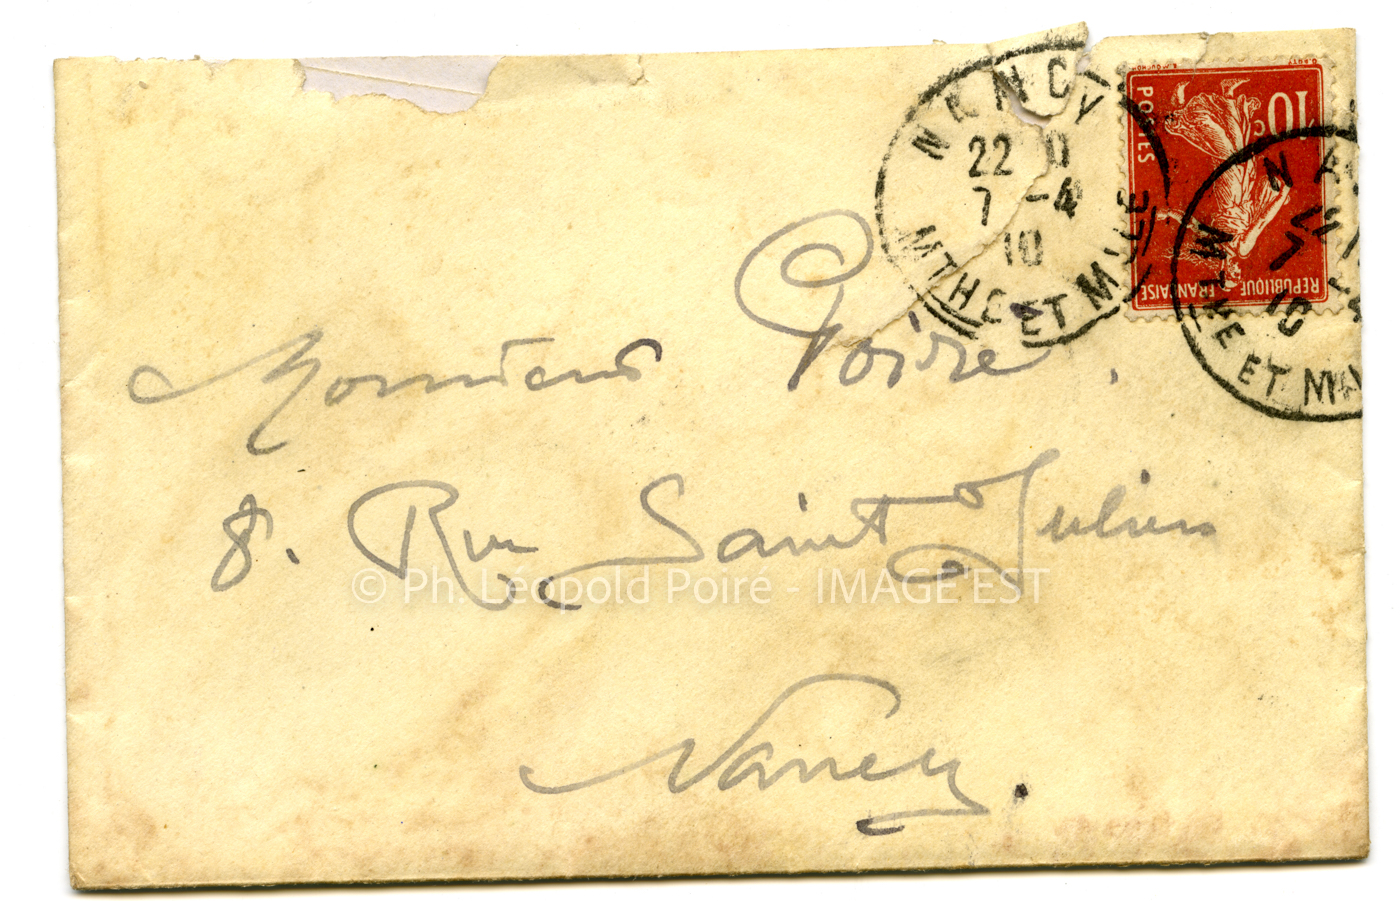 NANCY
22 0
7 -4
10
MTHE ET MLLE
POSTES
10 c
REPUBLIQUE FRANÇAISE
O. ROTY
NA
7
10
ET
Monsieur Poiré.
8. Rue Saint Julien
© Ph. Léopold Poiré - IMAGE'EST
Nancy.